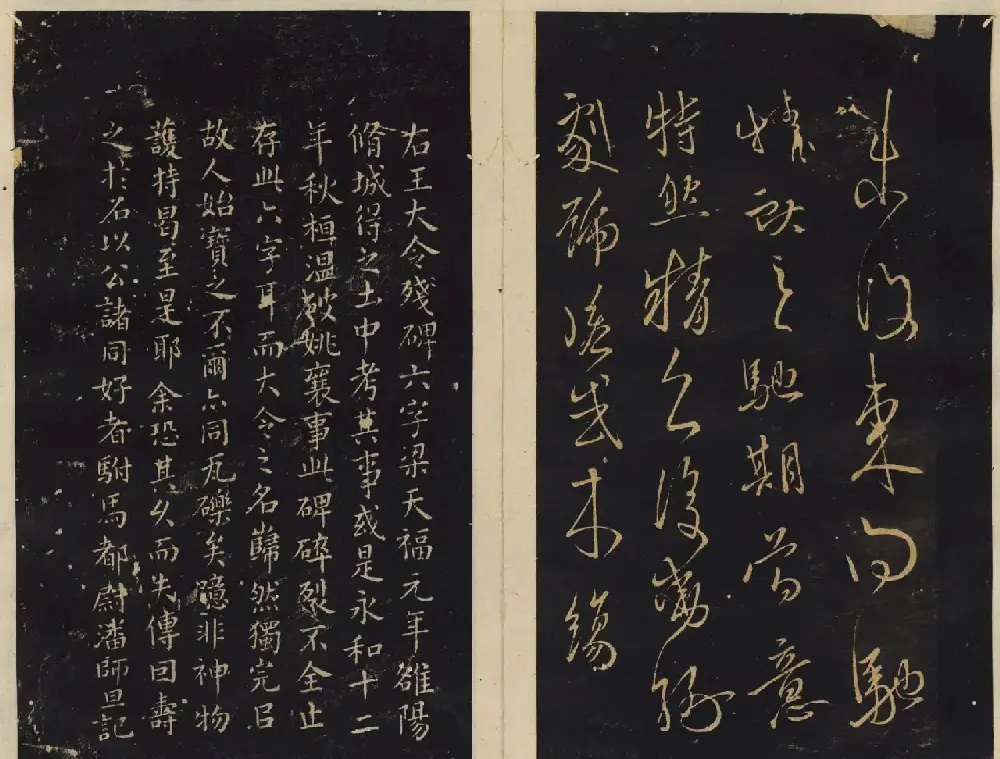 復東向馳
情之馳期意
特精復
劇
右王大令殘碑六字梁天福元年雒陽
脩城得之土中考其事或是永和十二
年秋桓温破姚襄事此碑碎裂不全止
存此六字耳而大令之名巋然獨完㠯
故人始寶之不爾亦同瓦礫矣噫非神物
護持曷至是耶余恐其久而失傳囙壽
之於石以公諸同好者駙馬都尉潘師旦記